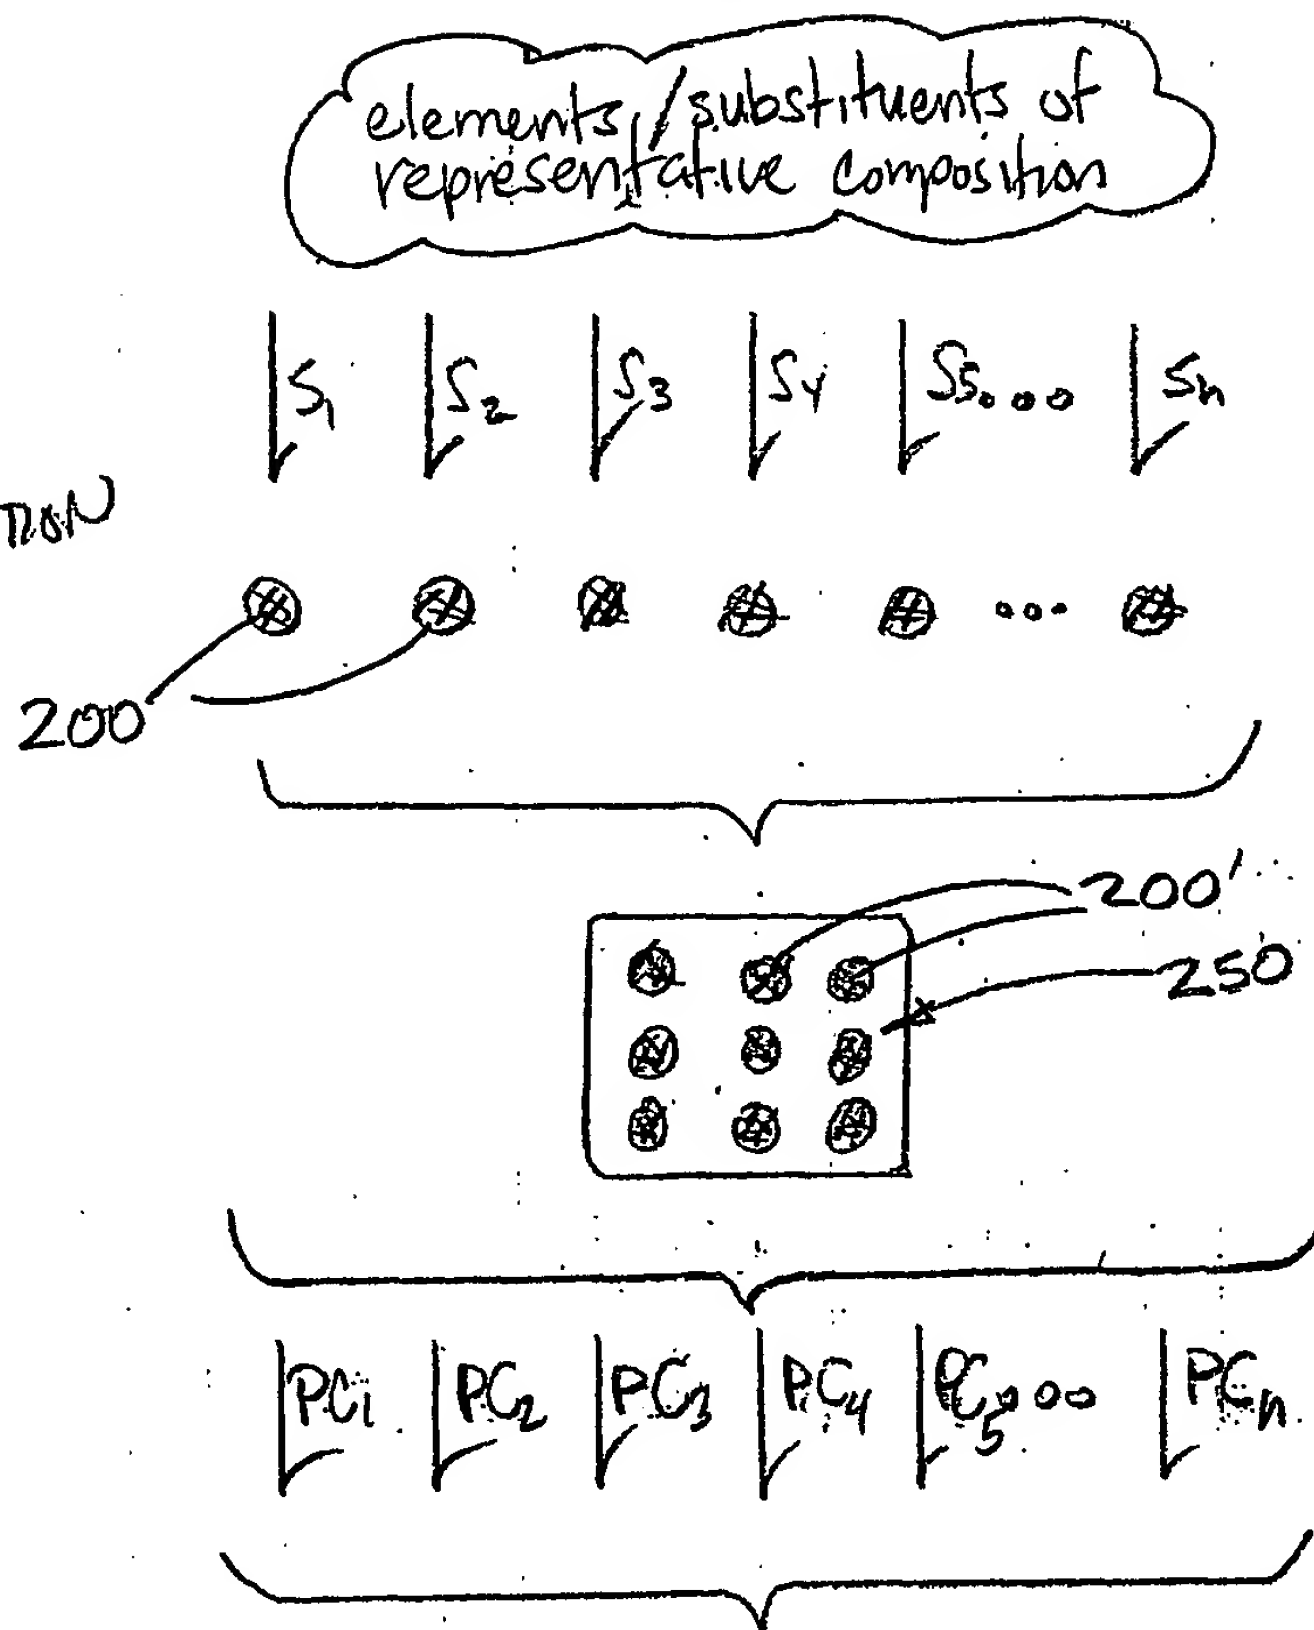 elements/substituents of
representative composition
S1 S2 S3 S4 S5... Sn
TION
...
200
200'
250
PC1 PC2 PC3 PC4 PC5... PCn